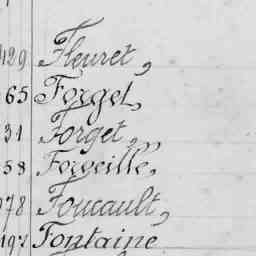 429 Fleuret,
65 Forget,
31 Forget,
58 Forveille,
978 Foucault,
197 Fontaine